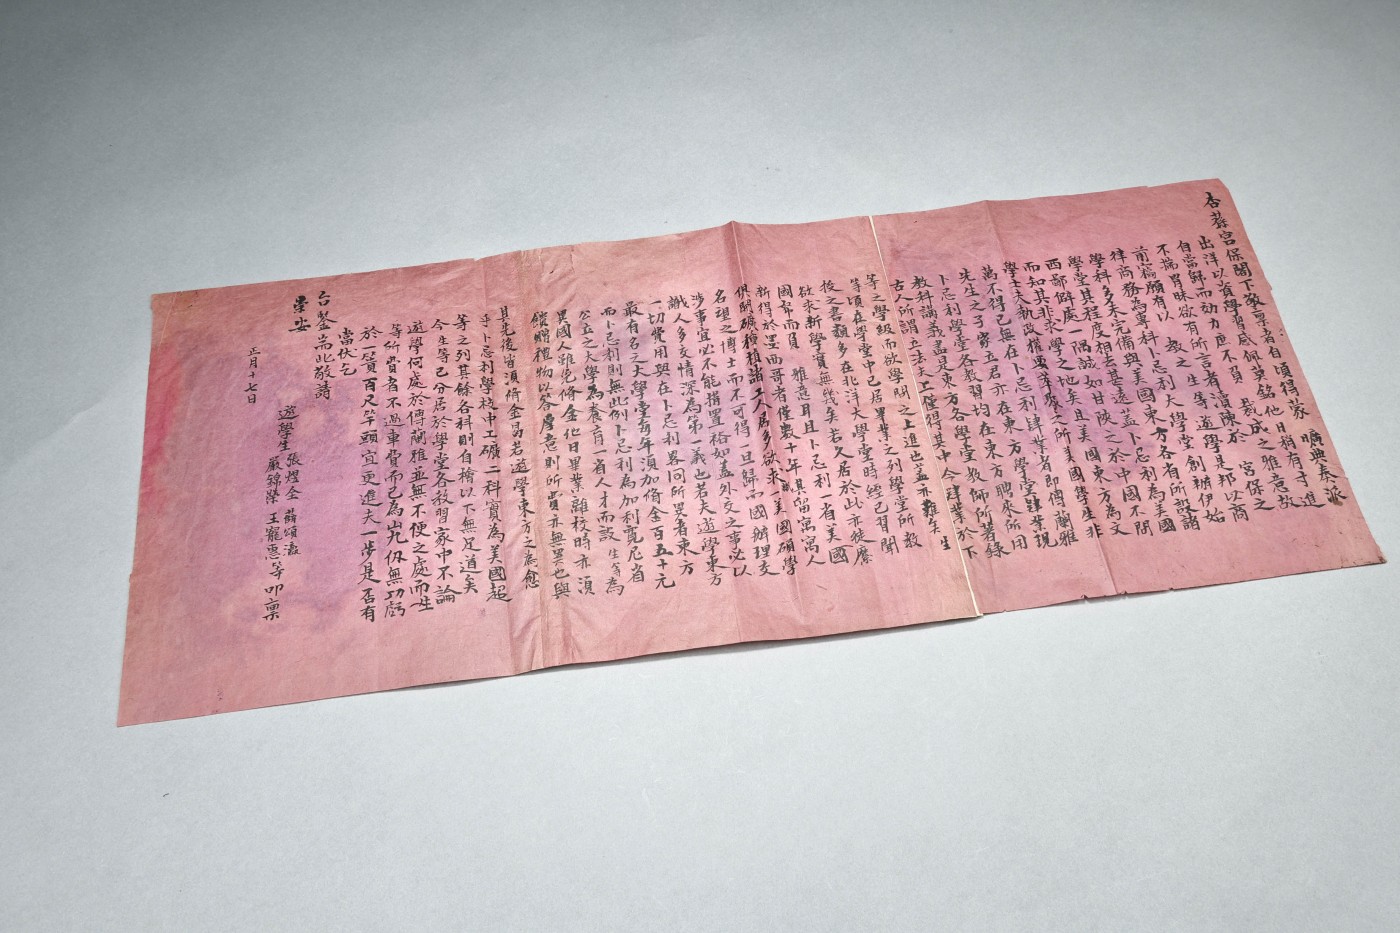 杏蓀宮保閣下敬稟者自頃得蒙
曠典奏派
出洋以資學習感佩莫銘他日稍有寸進
自當歸而効力咫不負 栽成之雅意故
不揣冒昧欲有所言者瀆陳於 宮保之
前竊願有以 教之 生等遊學是邦以商
律商務為專科卜忌利大學堂創辦伊始
學科多未完備與美國東方各有所設諸
學堂其程度相去甚遠蓋卜忌利為美國
西鄙僻處一隅誠如甘陝之於中國不問
而知其非求學之地矣且美國東方為文
學士夫執政權要萃聚之所美國學生非
萬不得已無在卜忌利肄業者即傅蘭雅
先生之子寄立君亦在東方學堂肄業現
卜忌利學堂各教習均在東方聘來所用
教科講義盡是東方各學堂教師所著錄
古人所謂立法夫上僅得其中今肄業於下
等之學級而欲學問之上進也蓋亦難矣生
等頃在學堂中已居畢業之列學堂所教
授之書類多在北洋大學堂時經已習聞
欲求新學實無幾矣若久居於此亦徒糜
國帑而負 雅意耳且卜忌利一省美國
新得於墨西哥者僅數十年其留寓寓人
俱開礦種植諸工人居多欲求一美國碩學
名望之博士而不可得一旦歸而國辦理交
涉事宜必不能措置裕如蓋外交之事必以
識人多交情深為第一義也若夫遊學東方
一切費用與在卜忌利畧同所異者東方
最有名之大學堂每年須加脩金百五十元
而卜忌利則無此例卜忌利為加利寬尼省
公立之大學為養育一省人才而設 生等為
異國人雖免脩金他日畢業離校時亦須
饋贈禮物以答厚意則所費亦無異也與
其先後皆須脩金曷若遊學東方之為愈
乎卜忌利學校中工礦二科實為美國超
等之列其餘各科則自檜以下無足道矣
今生等已分居於學堂各教習家中不論
遊學何處於傅蘭雅並無不便之處而生
等所費者不過車費而已為山九仞無功虧
於一簣百尺竿頭宜更進夫一步是否有
當伏乞
台鑒耑此敬請
崇安
遊學生張煜全 薛頌瀛
嚴錦榮 王寵惠等叩稟
正月十七日